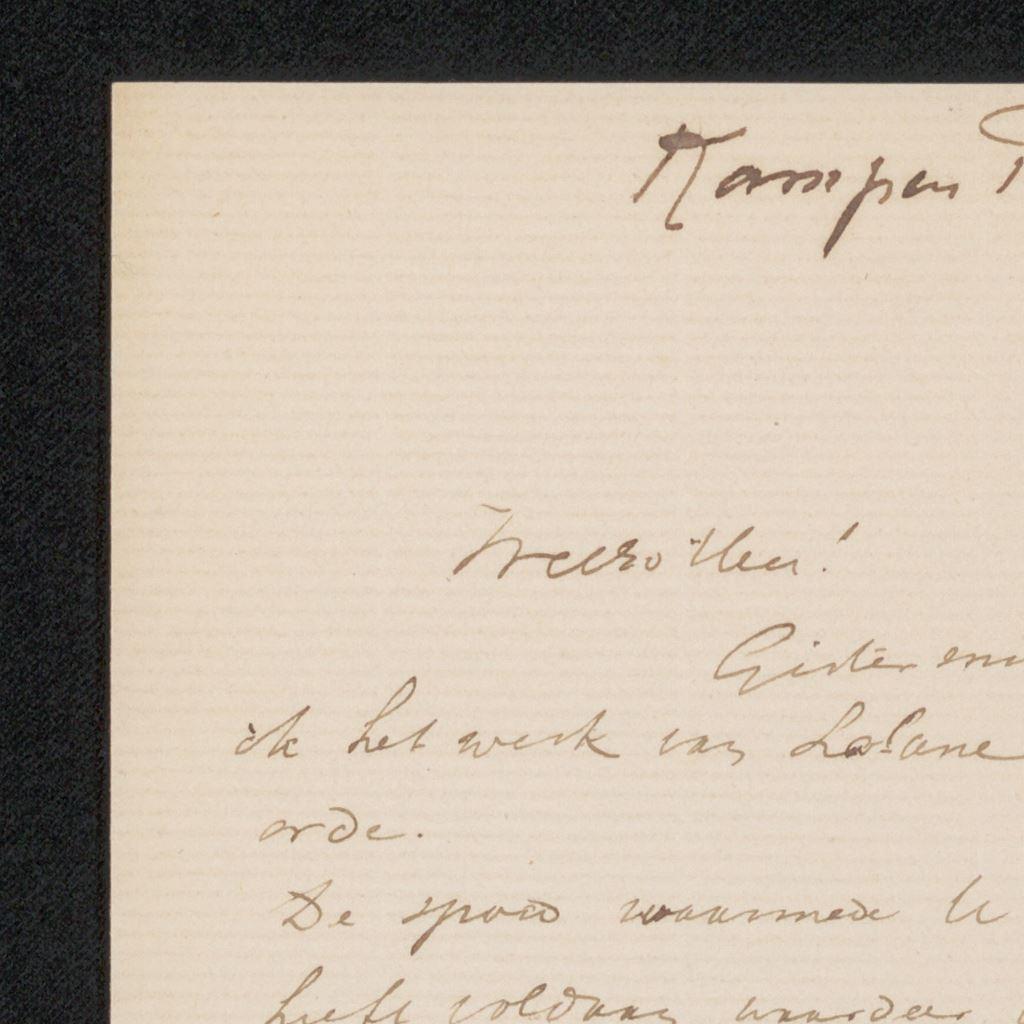 Kampen
Weledo Heer!
Gisteren
ik het werk van
orde.
De spoed waarmede U
heeft voldaan waardeer